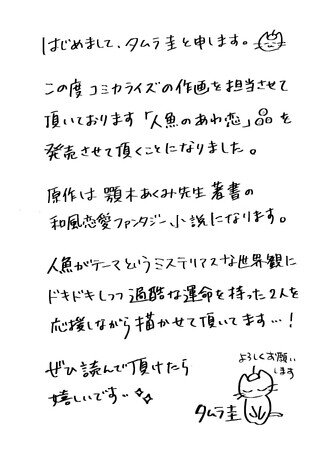 はじめまして、タムラ圭と申します。
この度コミカライズの作画を担当させて
頂いております「人魚のあわ恋」を
発売させて頂くことになりました。
原作は 顎木あくみ先生著書の
和風恋愛ファンタジー小説になります。
人魚がテーマというミステリアスな世界観に
ドキドキしつつ過酷な運命を持った2人を
応援しながら描かせて頂いてます…!
ぜひ読んで頂けたら
嬉しいです
よろしくお願い
します
タムラ圭